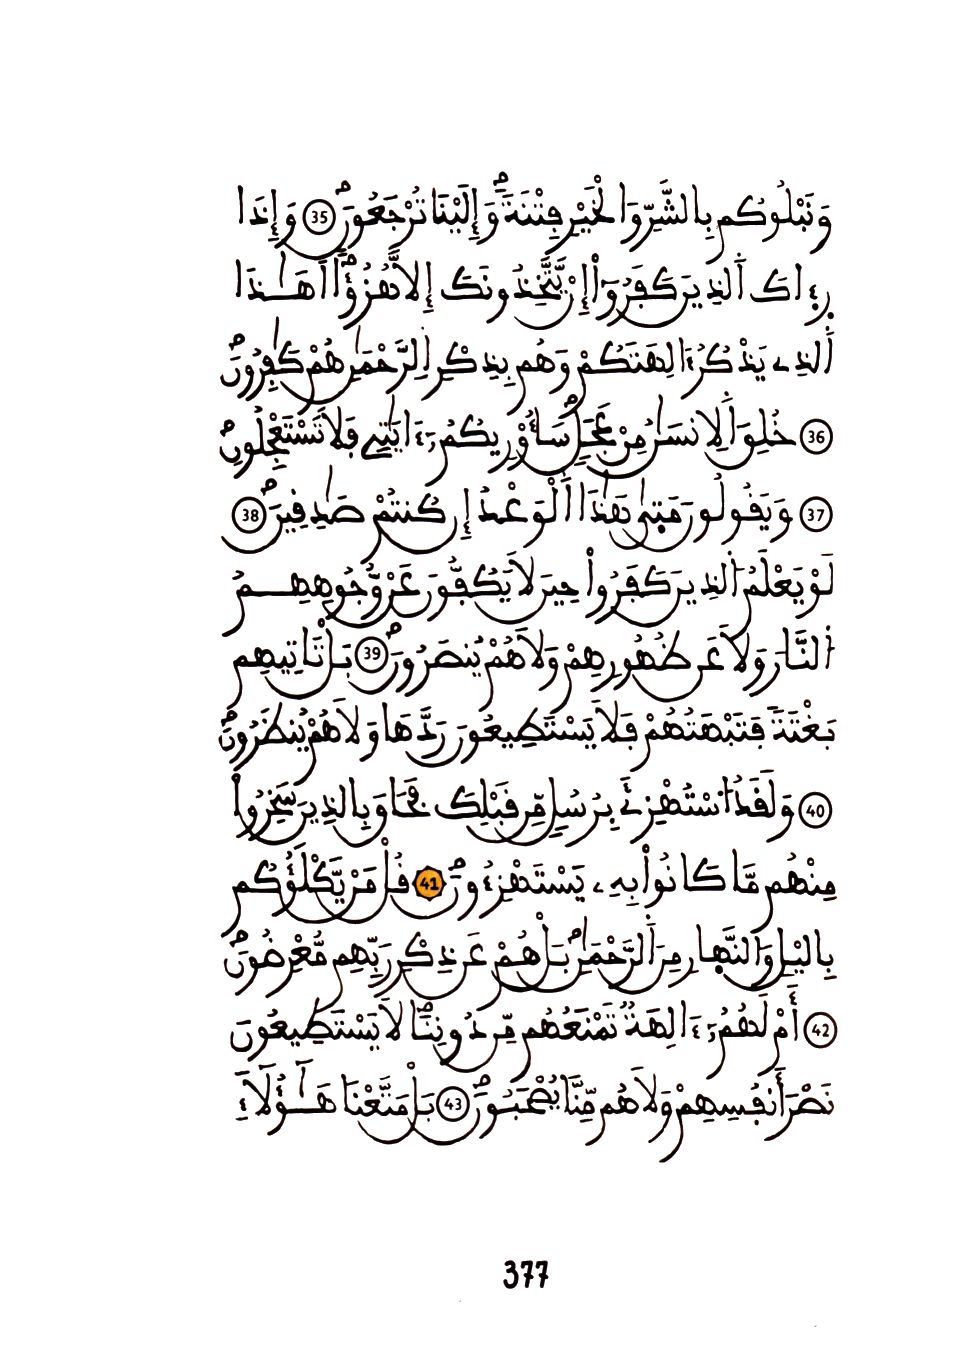 وَنَبْلُوكُم بِالشَّرِّ وَالْخَيْرِ فِتْنَةً وَإِلَيْنَا تُرْجَعُونَ 35 وَإِذَا
رِءَاكَ اَ۬لذِينَ كَفَرُوٓاْ إِنْ يَّتَّخِذُونَكَ إِلَّا هُزُؤاً اَهَٰذَا
اَ۬لذِے يَذْكُرُ ءَالِهَتَكُمْ وَهُم بِذِكْرِ اِ۬لرَّحْمَٰنِ هُمْ كَٰفِرُونَ
36 خُلِقَ اَ۬لِانسَٰنُ مِنْ عَجَلٍ سَأُوْرِيكُمُۥٓ ءَايَٰتِے فَلَا تَسْتَعْجِلُونِ
37 وَيَقُولُونَ مَتَىٰ هَٰذَا اَ۬لْوَعْدُ إِن كُنتُمْ صَٰدِقِينَ 38
لَوْ يَعْلَمُ اُ۬لذِينَ كَفَرُواْ حِينَ لَا يَكُفُّونَ عَنْ وُّجُوهِهِمُ
اُ۬لنَّارَ وَلَا عَن ظُهُورِهِمْ وَلَا هُمْ يُنصَرُونَ 39 بَلْ تَاتِيهِم
بَغْتَةً فَتَبْهَتُهُمْ فَلَا يَسْتَطِيعُونَ رَدَّهَا وَلَا هُمْ يُنظَرُونَ
40 وَلَقَدُ اُ۟سْتُهْزِئَ بِرُسُلٍ مِّن قَبْلِكَ فَحَاقَ بِالذِينَ سَخِرُواْ
مِنْهُم مَّا كَانُواْ بِهِۦ يَسْتَهْزِءُونَ 41 قُلْ مَنْ يَّكْلَؤُكُم
بِاليْلِ وَالنَّهارِ مِنَ اَ۬لرَّحْمَٰنِ بَلْ هُمْ عَن ذِكْرِ رَبِّهِم مُّعْرِضُونَ
42 أَمْ لَهُمُۥٓ ءَالِهَةٌ تَمْنَعُهُم مِّن دُونِنَا لَا يَسْتَطِيعُونَ
نَصْرَ أَنفُسِهِمْ وَلَا هُم مِّنَّا يُصْحَبُونَ 43 بَلْ مَتَّعْنَا هَٰٓؤُلَآءِ
377